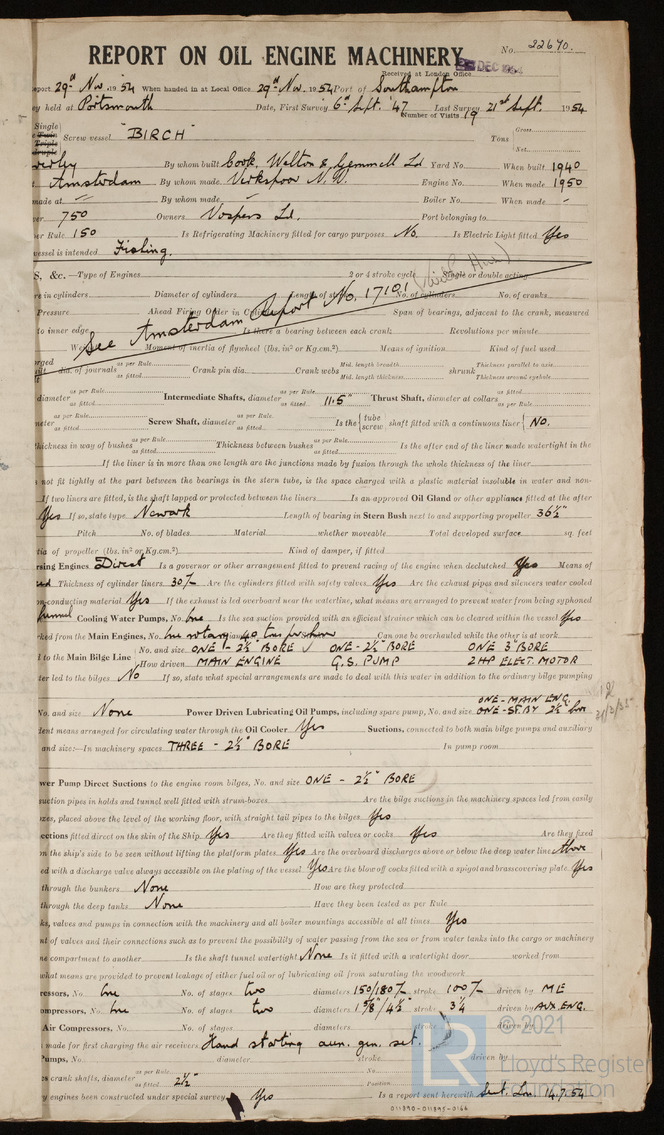 REPORT ON OIL ENGINE MACHINERY.
No. 22670.
Received at London Office
DEC 1954
port 29th Nov. 1954 When handed in at Local Office 29th Nov. 1954 Port of Southampton
ey held at Portsmouth Date, First Survey 6th Sept. '47 Last Survey 21st Sept. 1954
Number of Visits 19
Single
Triple
Screw vessel "BIRCH" Tons Gross
Net
verley By whom built Cook, Welton & Gemmell Ld Yard No. When built 1940
Amsterdam By whom made Verkspoor N.V. Engine No. When made 1950
made at - By whom made - Boiler No. When made -
wer 750 Owners Vospers Ld. Port belonging to
er Rule 150 Is Refrigerating Machinery fitted for cargo purposes No. Is Electric Light fitted Yes
vessel is intended Fishing.
S, &c.—Type of Engines 2 or 4 stroke cycle Single or double acting
re in cylinders Diameter of cylinders Length of stroke No. of cylinders No. of cranks
Pressure Ahead Firing Order in Cylinders Span of bearings, adjacent to the crank, measured
See Amsterdam Report No. 17101
to inner edge Is there a bearing between each crank Revolutions per minute
We Moment of inertia of flywheel (lbs. in² or Kg.cm.²) Means of ignition Kind of fuel used
dia. of journals as per Rule as fitted Crank pin dia. Crank webs Mid. length breadth Mid. length thickness shrunk Thickness parallel to axis Thickness around eyehole
diameter as per Rule as fitted Intermediate Shafts, diameter as per Rule as fitted 11.5" Thrust Shaft, diameter at collars as per Rule as fitted
meter as per Rule as fitted Screw Shaft, diameter as per Rule as fitted Is the { tube screw shaft fitted with a continuous liner { No.
thickness in way of bushes as per Rule as fitted Thickness between bushes as per Rule as fitted Is the after end of the liner made watertight in the
If the liner is in more than one length are the junctions made by fusion through the whole thickness of the liner
not fit tightly at the part between the bearings in the stern tube, is the space charged with a plastic material insoluble in water and non-
If two liners are fitted, is the shaft lapped or protected between the liners Is an approved Oil Gland or other appliance fitted at the after
Yes If so, state type Newark Length of bearing in Stern Bush next to and supporting propeller 36½"
Pitch No. of blades Material whether moveable Total developed surface sq. feet
tia of propeller (lbs. in² or Kg.cm.²) Kind of damper, if fitted
rsing Engines Direct Is a governor or other arrangement fitted to prevent racing of the engine when declutched Yes Means of
Thickness of cylinder liners 30 Are the cylinders fitted with safety valves Yes Are the exhaust pipes and silencers water cooled
on-conducting material Yes If the exhaust is led overboard near the waterline, what means are arranged to prevent water from being syphoned
funnel Cooling Water Pumps, No. One Is the sea suction provided with an efficient strainer which can be cleared within the vessel Yes
ked from the Main Engines, No. One rotary 40 tons per hour Can one be overhauled while the other is at work
to the Main Bilge Line No. and size ONE - 2½" BORE ONE - 2½" BORE ONE 3" BORE
How driven MAIN ENGINE G.S. PUMP 2HP ELECT. MOTOR
ter led to the bilges No If so, state what special arrangements are made to deal with this water in addition to the ordinary bilge pumping
ONE - MAIN ENG.
No. and size None Power Driven Lubricating Oil Pumps, including spare pump, No. and size ONE - ST.BY 2½" bore
dent means arranged for circulating water through the Oil Cooler Yes Suctions, connected to both main bilge pumps and auxiliary
and size:—In machinery spaces THREE - 2½" BORE In pump room
wer Pump Direct Suctions to the engine room bilges, No. and size ONE - 2½" BORE
uction pipes in holds and tunnel well fitted with strum-boxes Are the bilge suctions in the machinery spaces led from easily
xes, placed above the level of the working floor, with straight tail pipes to the bilges Yes
ections fitted direct on the skin of the Ship Yes Are they fitted with valves or cocks Yes Are they fixed
n the ship's side to be seen without lifting the platform plates Yes Are the overboard discharges above or below the deep water line Above
ed with a discharge valve always accessible on the plating of the vessel Yes Are the blow off cocks fitted with a spigot and brass covering plate Yes
through the bunkers None How are they protected
through the deep tanks None Have they been tested as per Rule
ks, valves and pumps in connection with the machinery and all boiler mountings accessible at all times Yes
nt of valves and their connections such as to prevent the possibility of water passing from the sea or from water tanks into the cargo or machinery
ne compartment to another Is the shaft tunnel watertight None Is it fitted with a watertight door worked from
what means are provided to prevent leakage of either fuel oil or of lubricating oil from saturating the woodwork
ressors, No. One No. of stages two diameters 150/180 stroke 100 driven by ME
ompressors, No. One No. of stages two diameters 1⅝/4½" stroke 3¼ driven by AUX ENG.
Air Compressors, No. No. of stages diameters stroke driven by
made for first charging the air receivers Hand starting aux. gen. set.
Pumps, No. diameter stroke driven by
s crank shafts, diameter as per Rule as fitted 2½" No. Position
y engines been constructed under special survey Yes Is a report sent herewith Sent. Lon. 14.7.54
011890-011895-0166
© 2021
LR
Lloyd's Register
Foundation